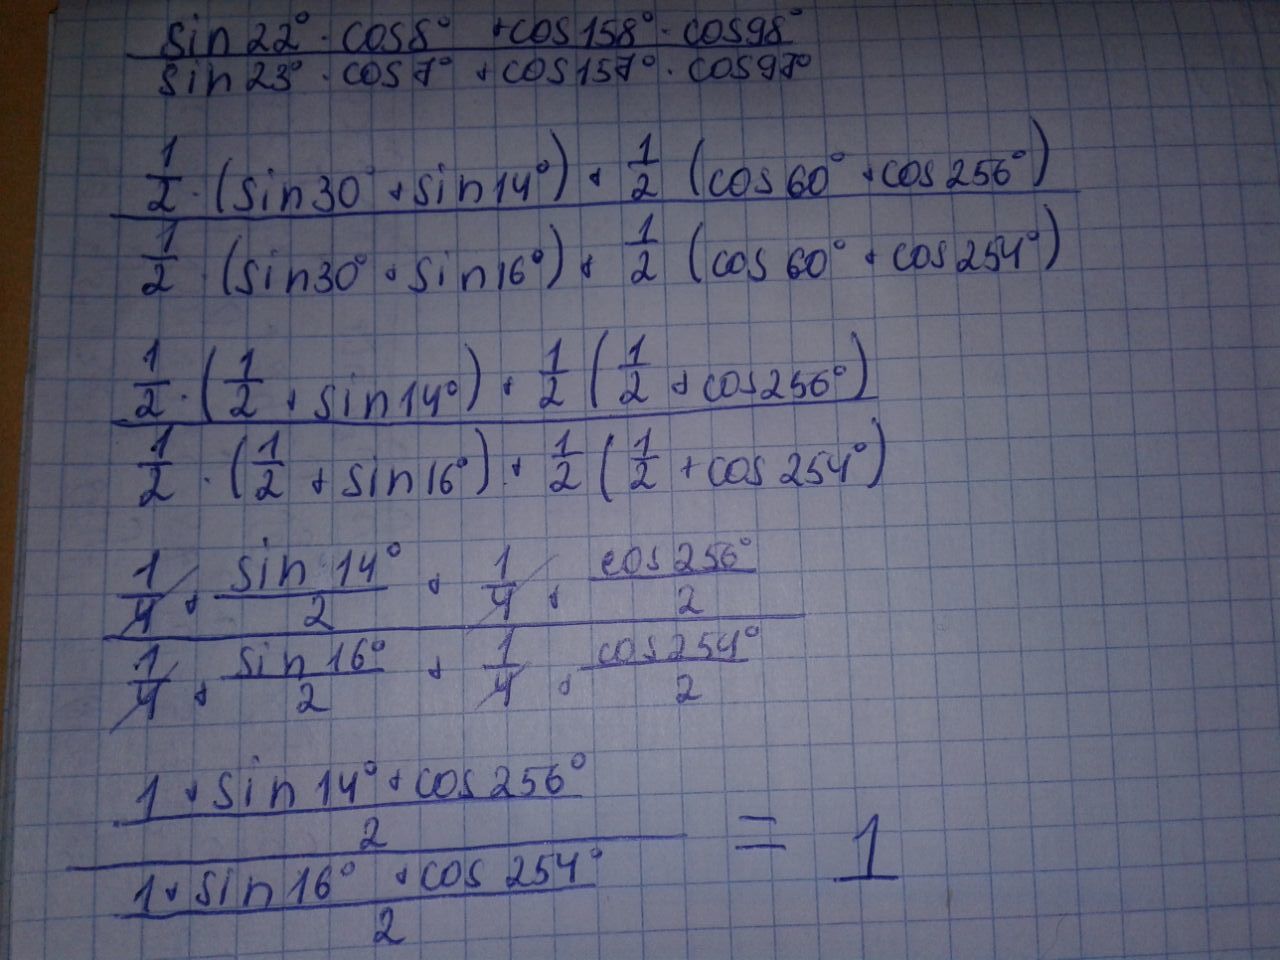 sin22°·cos8° +cos158°·cos98°
sin23°·cos7° +cos157°·cos97°
1/2·(sin30°+sin14°)+1/2(cos60°+cos256°)
1/2·(sin30°+sin16°)+1/2(cos60°+cos254°)
1/2·(1/2+sin14°)+1/2(1/2+cos256°)
1/2·(1/2+sin16°)+1/2(1/2+cos254°)
1/4+sin14°/2+1/4+cos256°/2
1/4+sin16°/2+1/4+cos254°/2
1+sin14°+cos256°
2
= 1
1+sin16°+cos254°
2